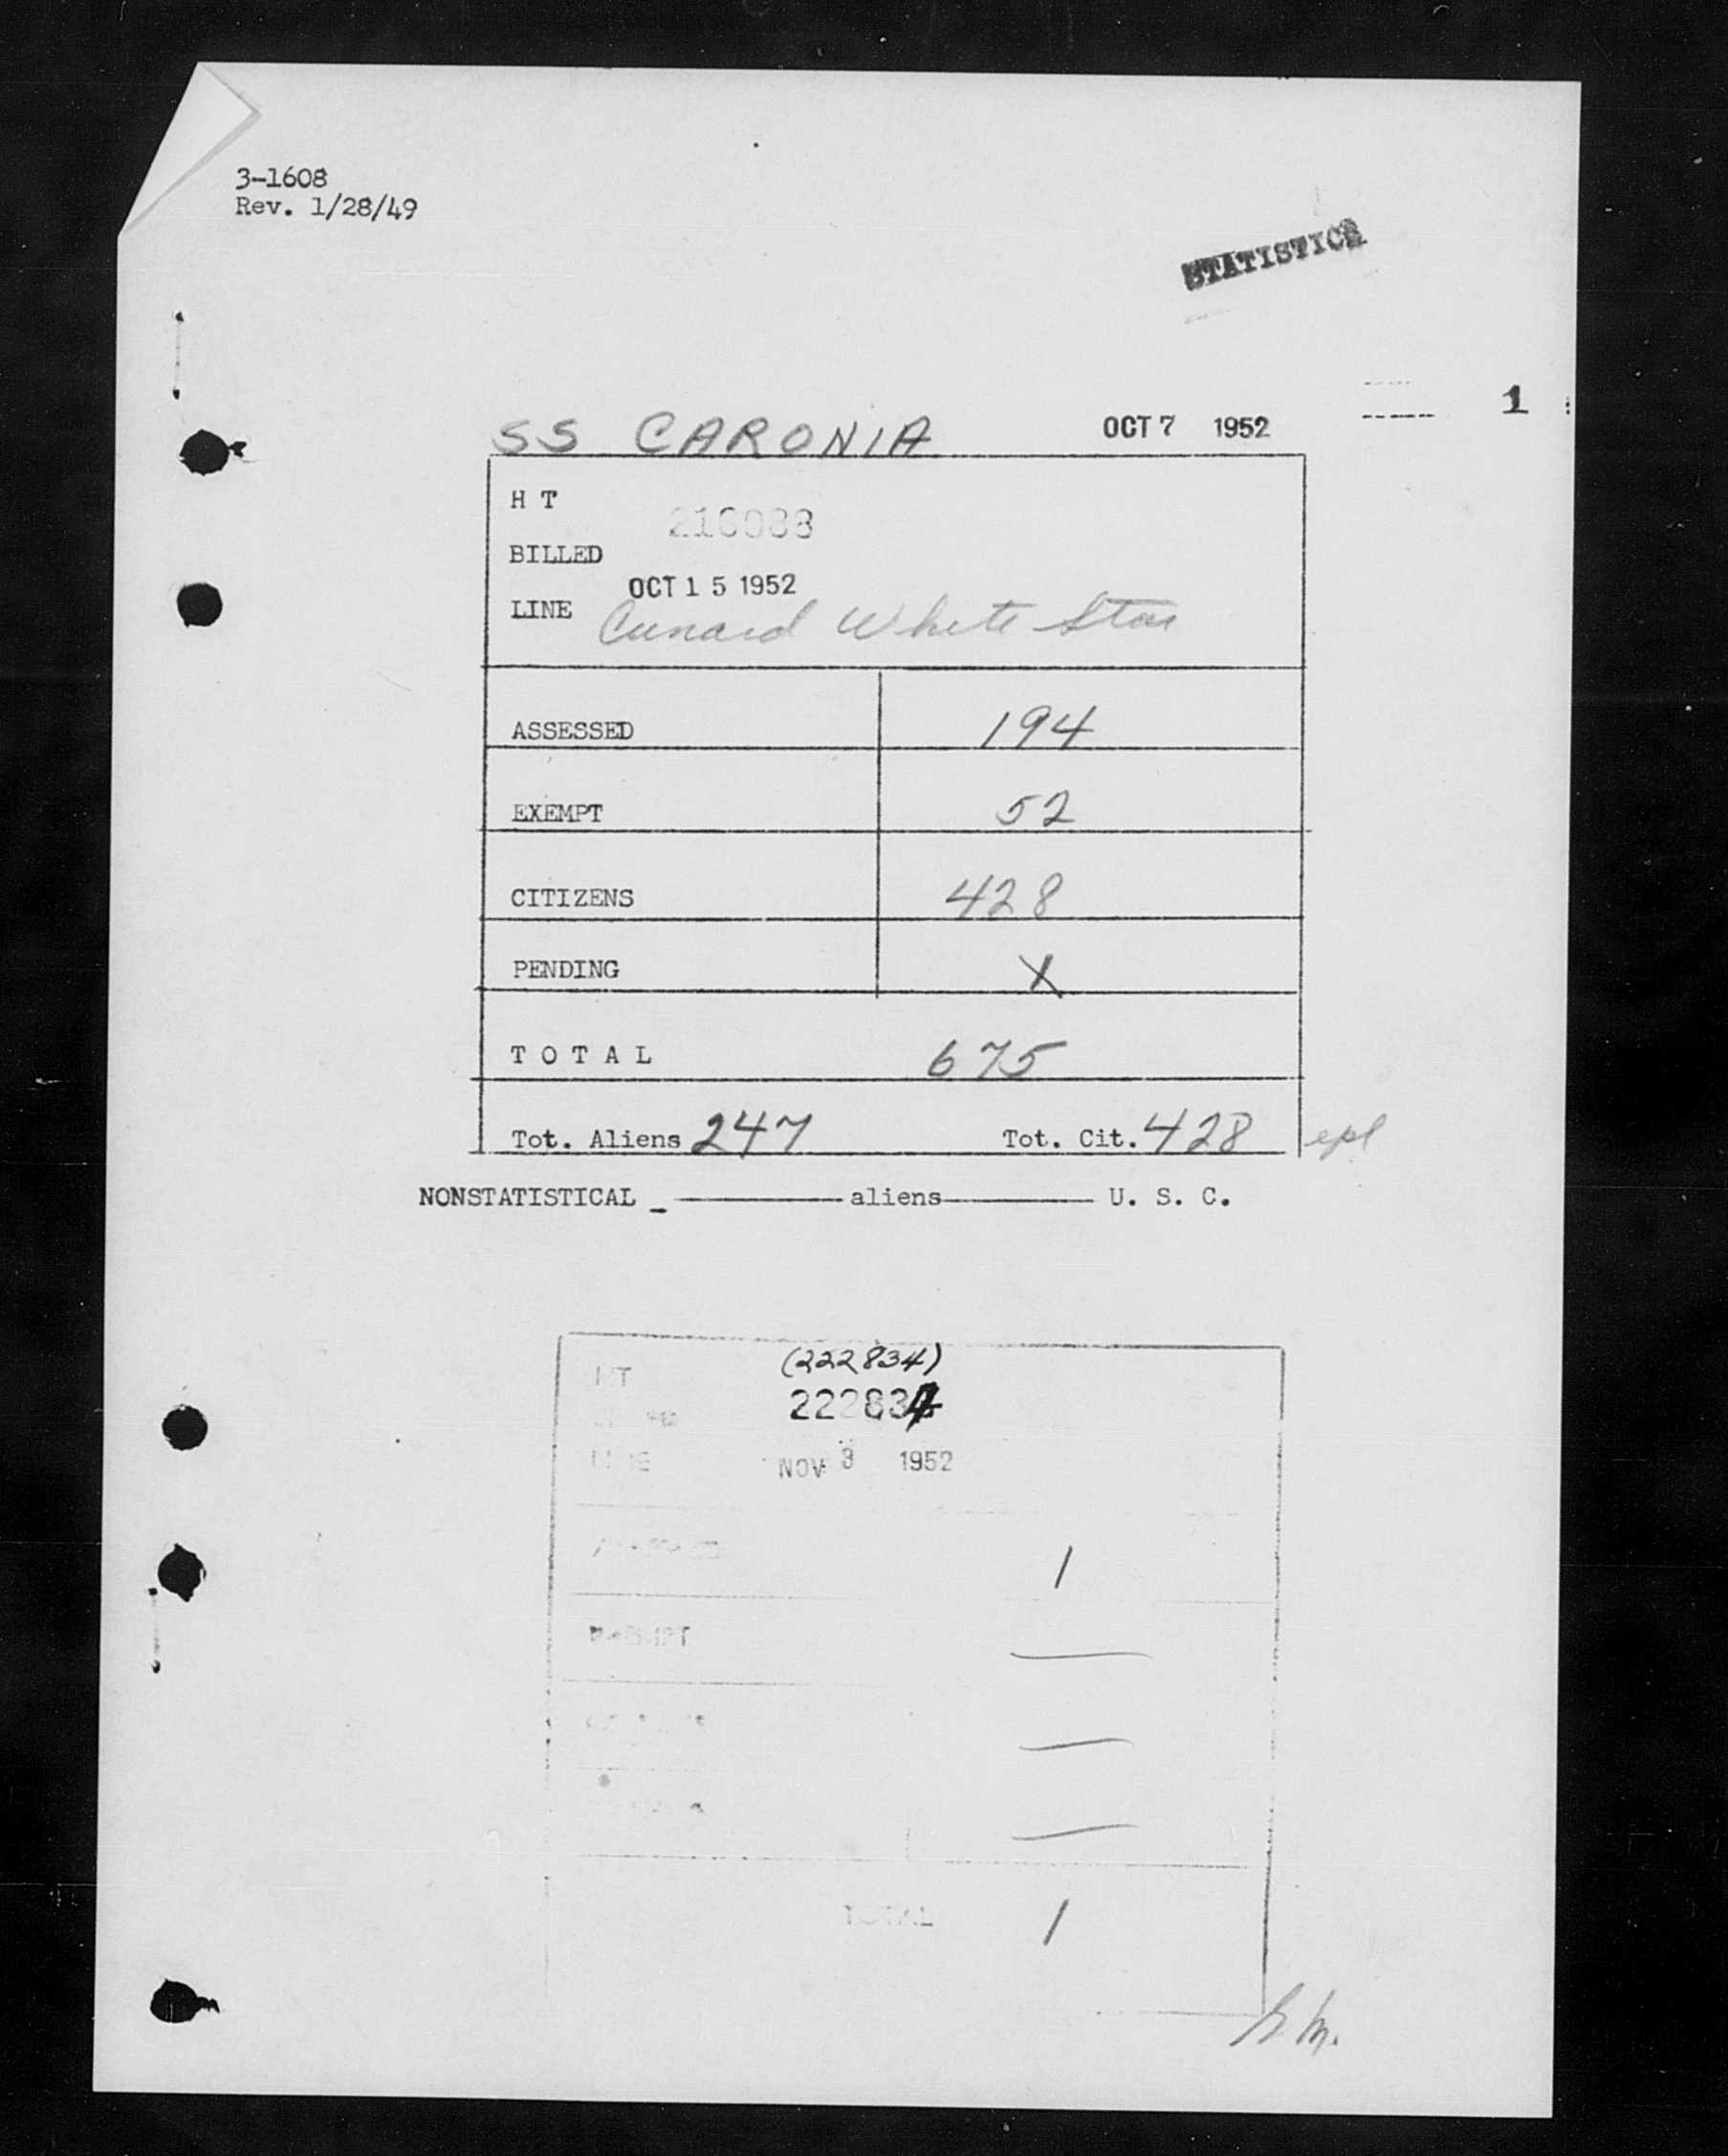 3-1608
Rev. 1/28/49
STATISTICS
1
SS CARONIA OCT 7 1952
H T
BILLED
OCT 15 1952
LINE Cunard White Star
ASSESSED 194
EXEMPT 52
CITIZENS 428
PENDING X
TOTAL 675
Tot. Aliens 247 Tot. Cit. 428 epl
NONSTATISTICAL _ aliens U. S. C.
HT (222834)
222834
LINE NOV 3 1952
1
EXEMPT —
—
—
TOTAL 1